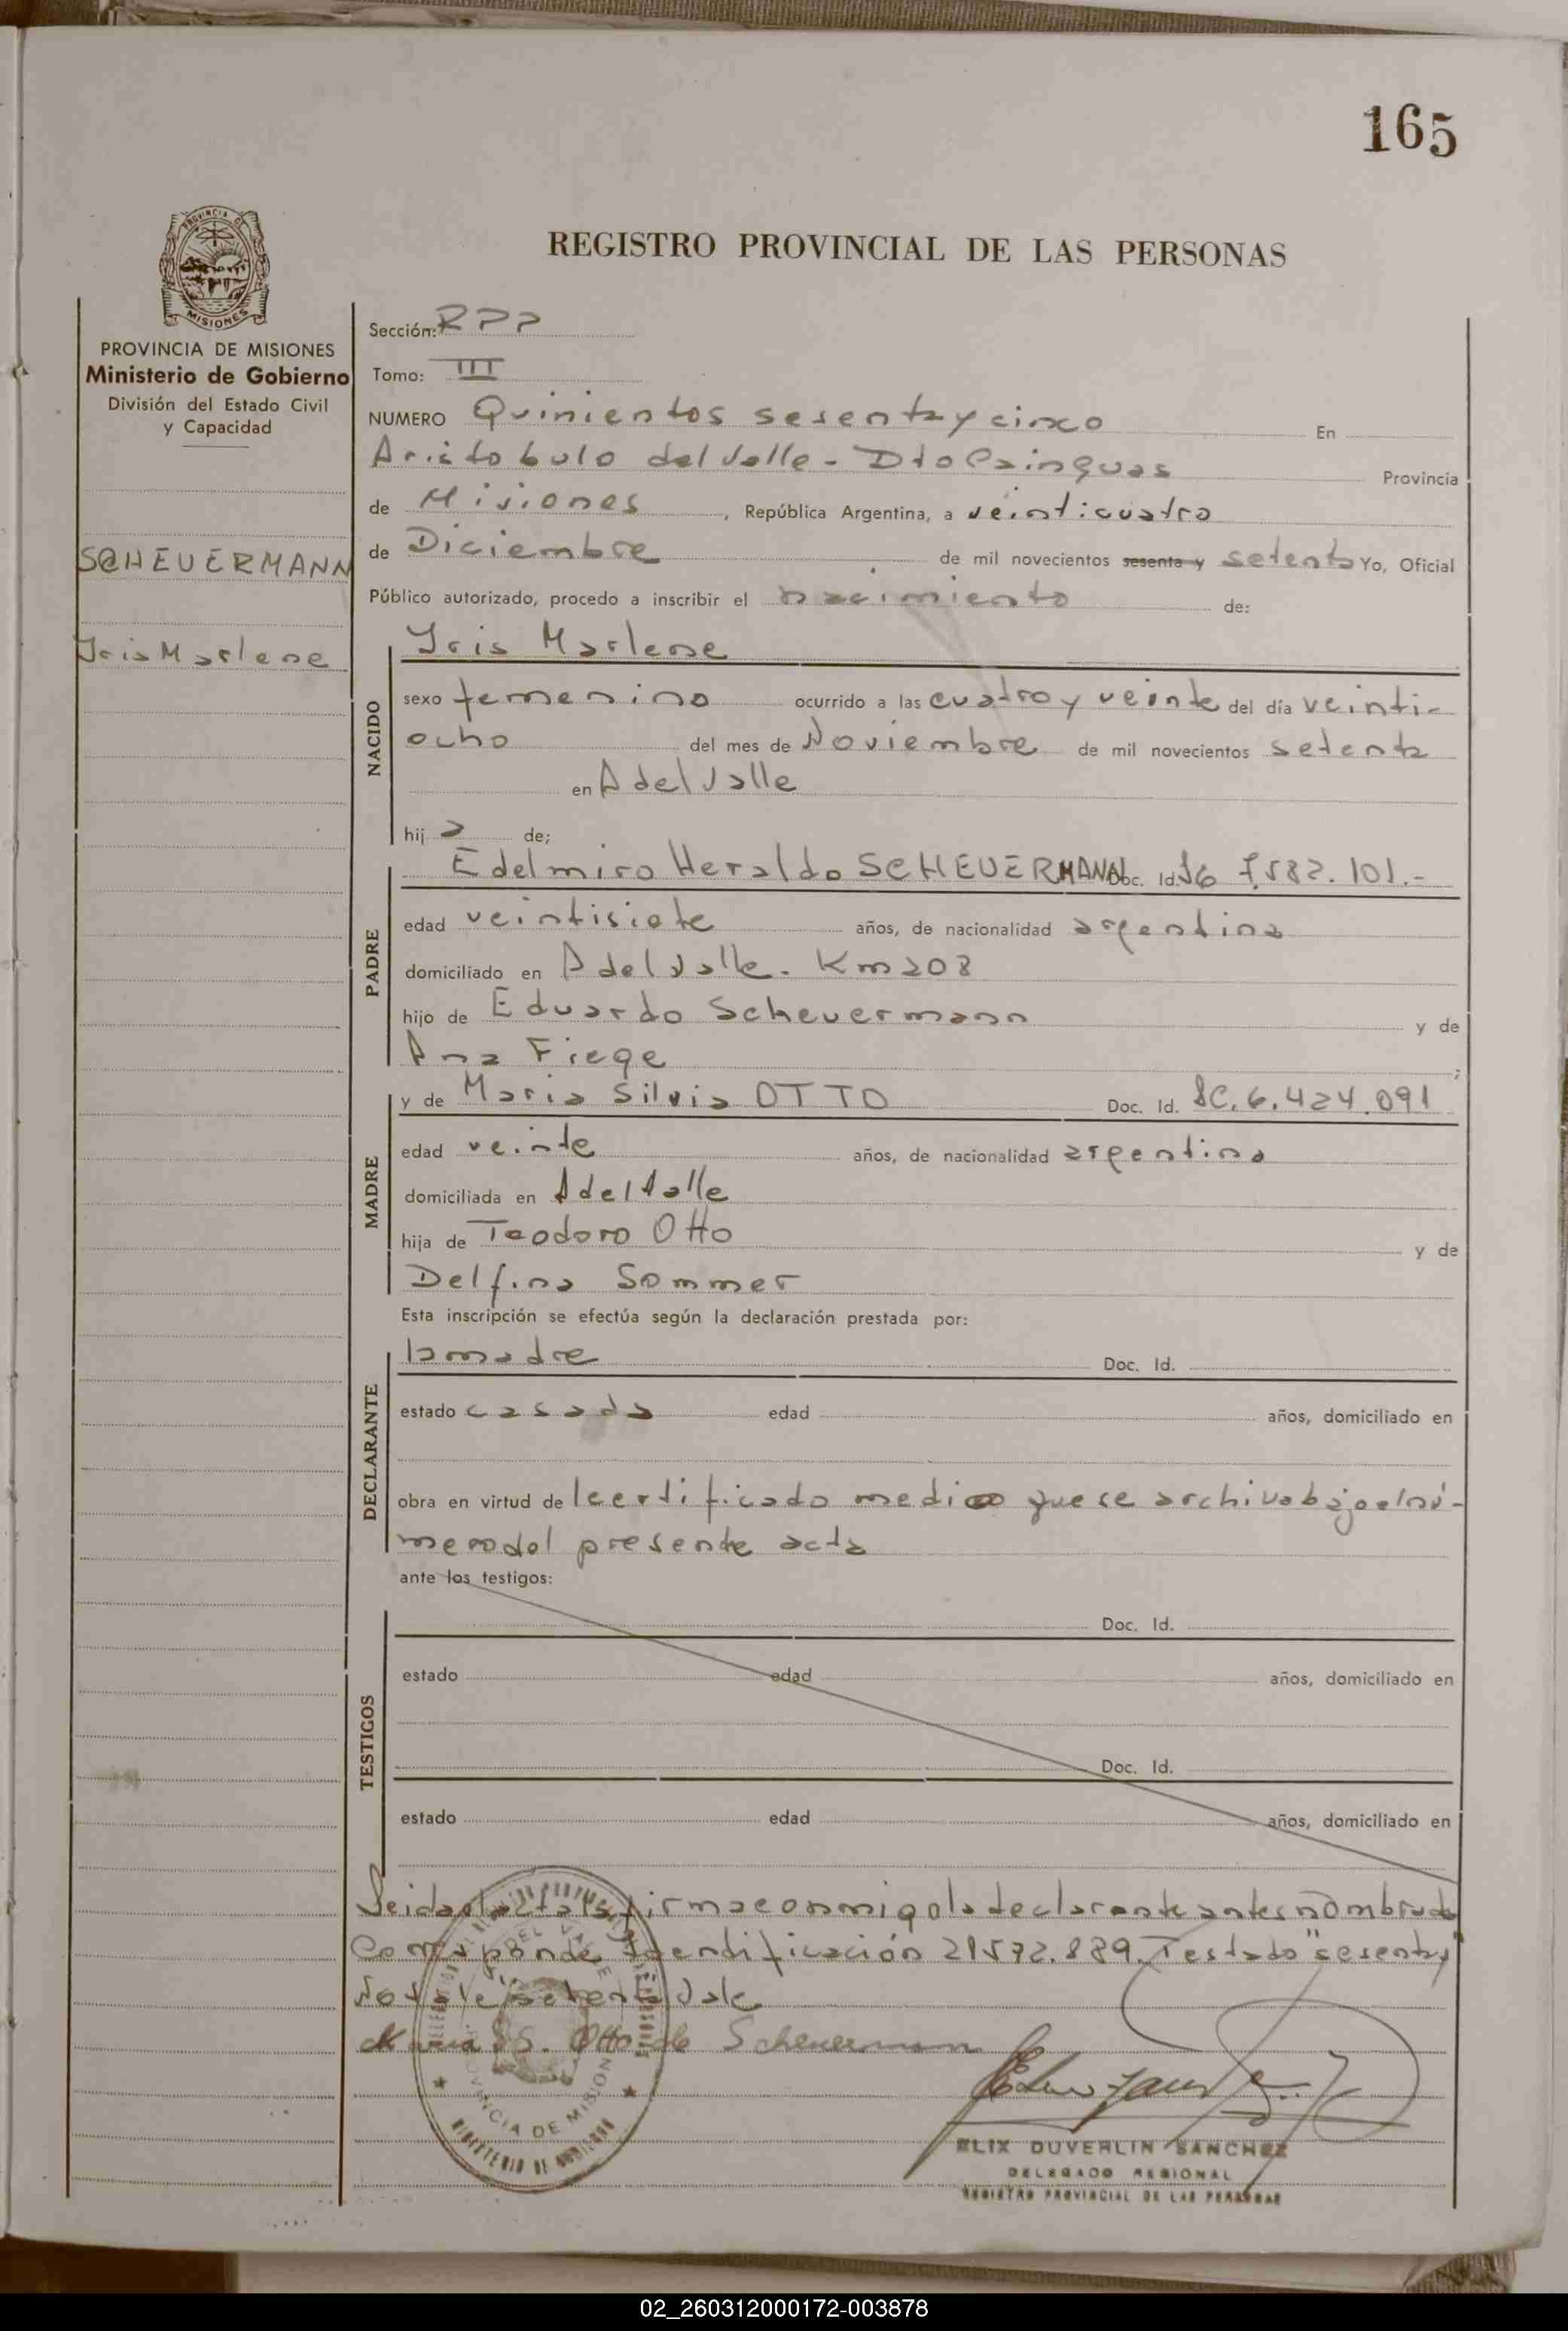 165
PROVINCIA DE
MISIONES
REGISTRO PROVINCIAL DE LAS PERSONAS
PROVINCIA DE MISIONES
Ministerio de Gobierno
División del Estado Civil
y Capacidad
SCHEUERMANN
Iris Marlene
Sección: RPP
Tomo: III
NUMERO Quinientos sesenta y cinco En
Aristobulo del Valle - Dto Cainguas Provincia
de Misiones, República Argentina, a veinticuatro
de Diciembre de mil novecientos sesenta y setenta Yo, Oficial
Público autorizado, procedo a inscribir el nacimiento de:
NACIDO
Iris Marlene
sexo femenino ocurrido a las cuatro y veinte del día veinti-
ocho del mes de Noviembre de mil novecientos setenta
en A del Valle
hij a de;
PADRE
Edelmiro Heraldo SCHEUERMANN Doc. Id. 7.582.101.-
edad veintisiete años, de nacionalidad argentina
domiciliado en A del Valle. Km 208
hijo de Eduardo Scheuermann y de
Ana Fiege;
MADRE
y de Maria Silvia OTTO Doc. Id. 6.424.091
edad veinte años, de nacionalidad argentina
domiciliada en A del Valle
hija de Teodoro Otto y de
Delfina Sommer
Esta inscripción se efectúa según la declaración prestada por:
DECLARANTE
la madre Doc. Id.
estado casada edad años, domiciliado en
obra en virtud de l certificado medico que se archiva bajo el nú-
mero del presente acta
ante los testigos:
TESTIGOS
Doc. Id.
estado edad años, domiciliado en
Doc. Id.
estado edad años, domiciliado en
Leida el acta la firma conmigo la declarante antes nombrada
Corresponde Identificación 21572.889. Testado "sesenta y"
No vale setenta Vale
Maria S. Otto de Scheuermann
DEL VALLE
PROVINCIA DE MISIONES
MINISTERIO DE GOBIERNO
ELIX DUVERLIN SANCHEZ
DELEGADO REGIONAL
REGISTRO PROVINCIAL DE LAS PERSONAS
02_260312000172-003878